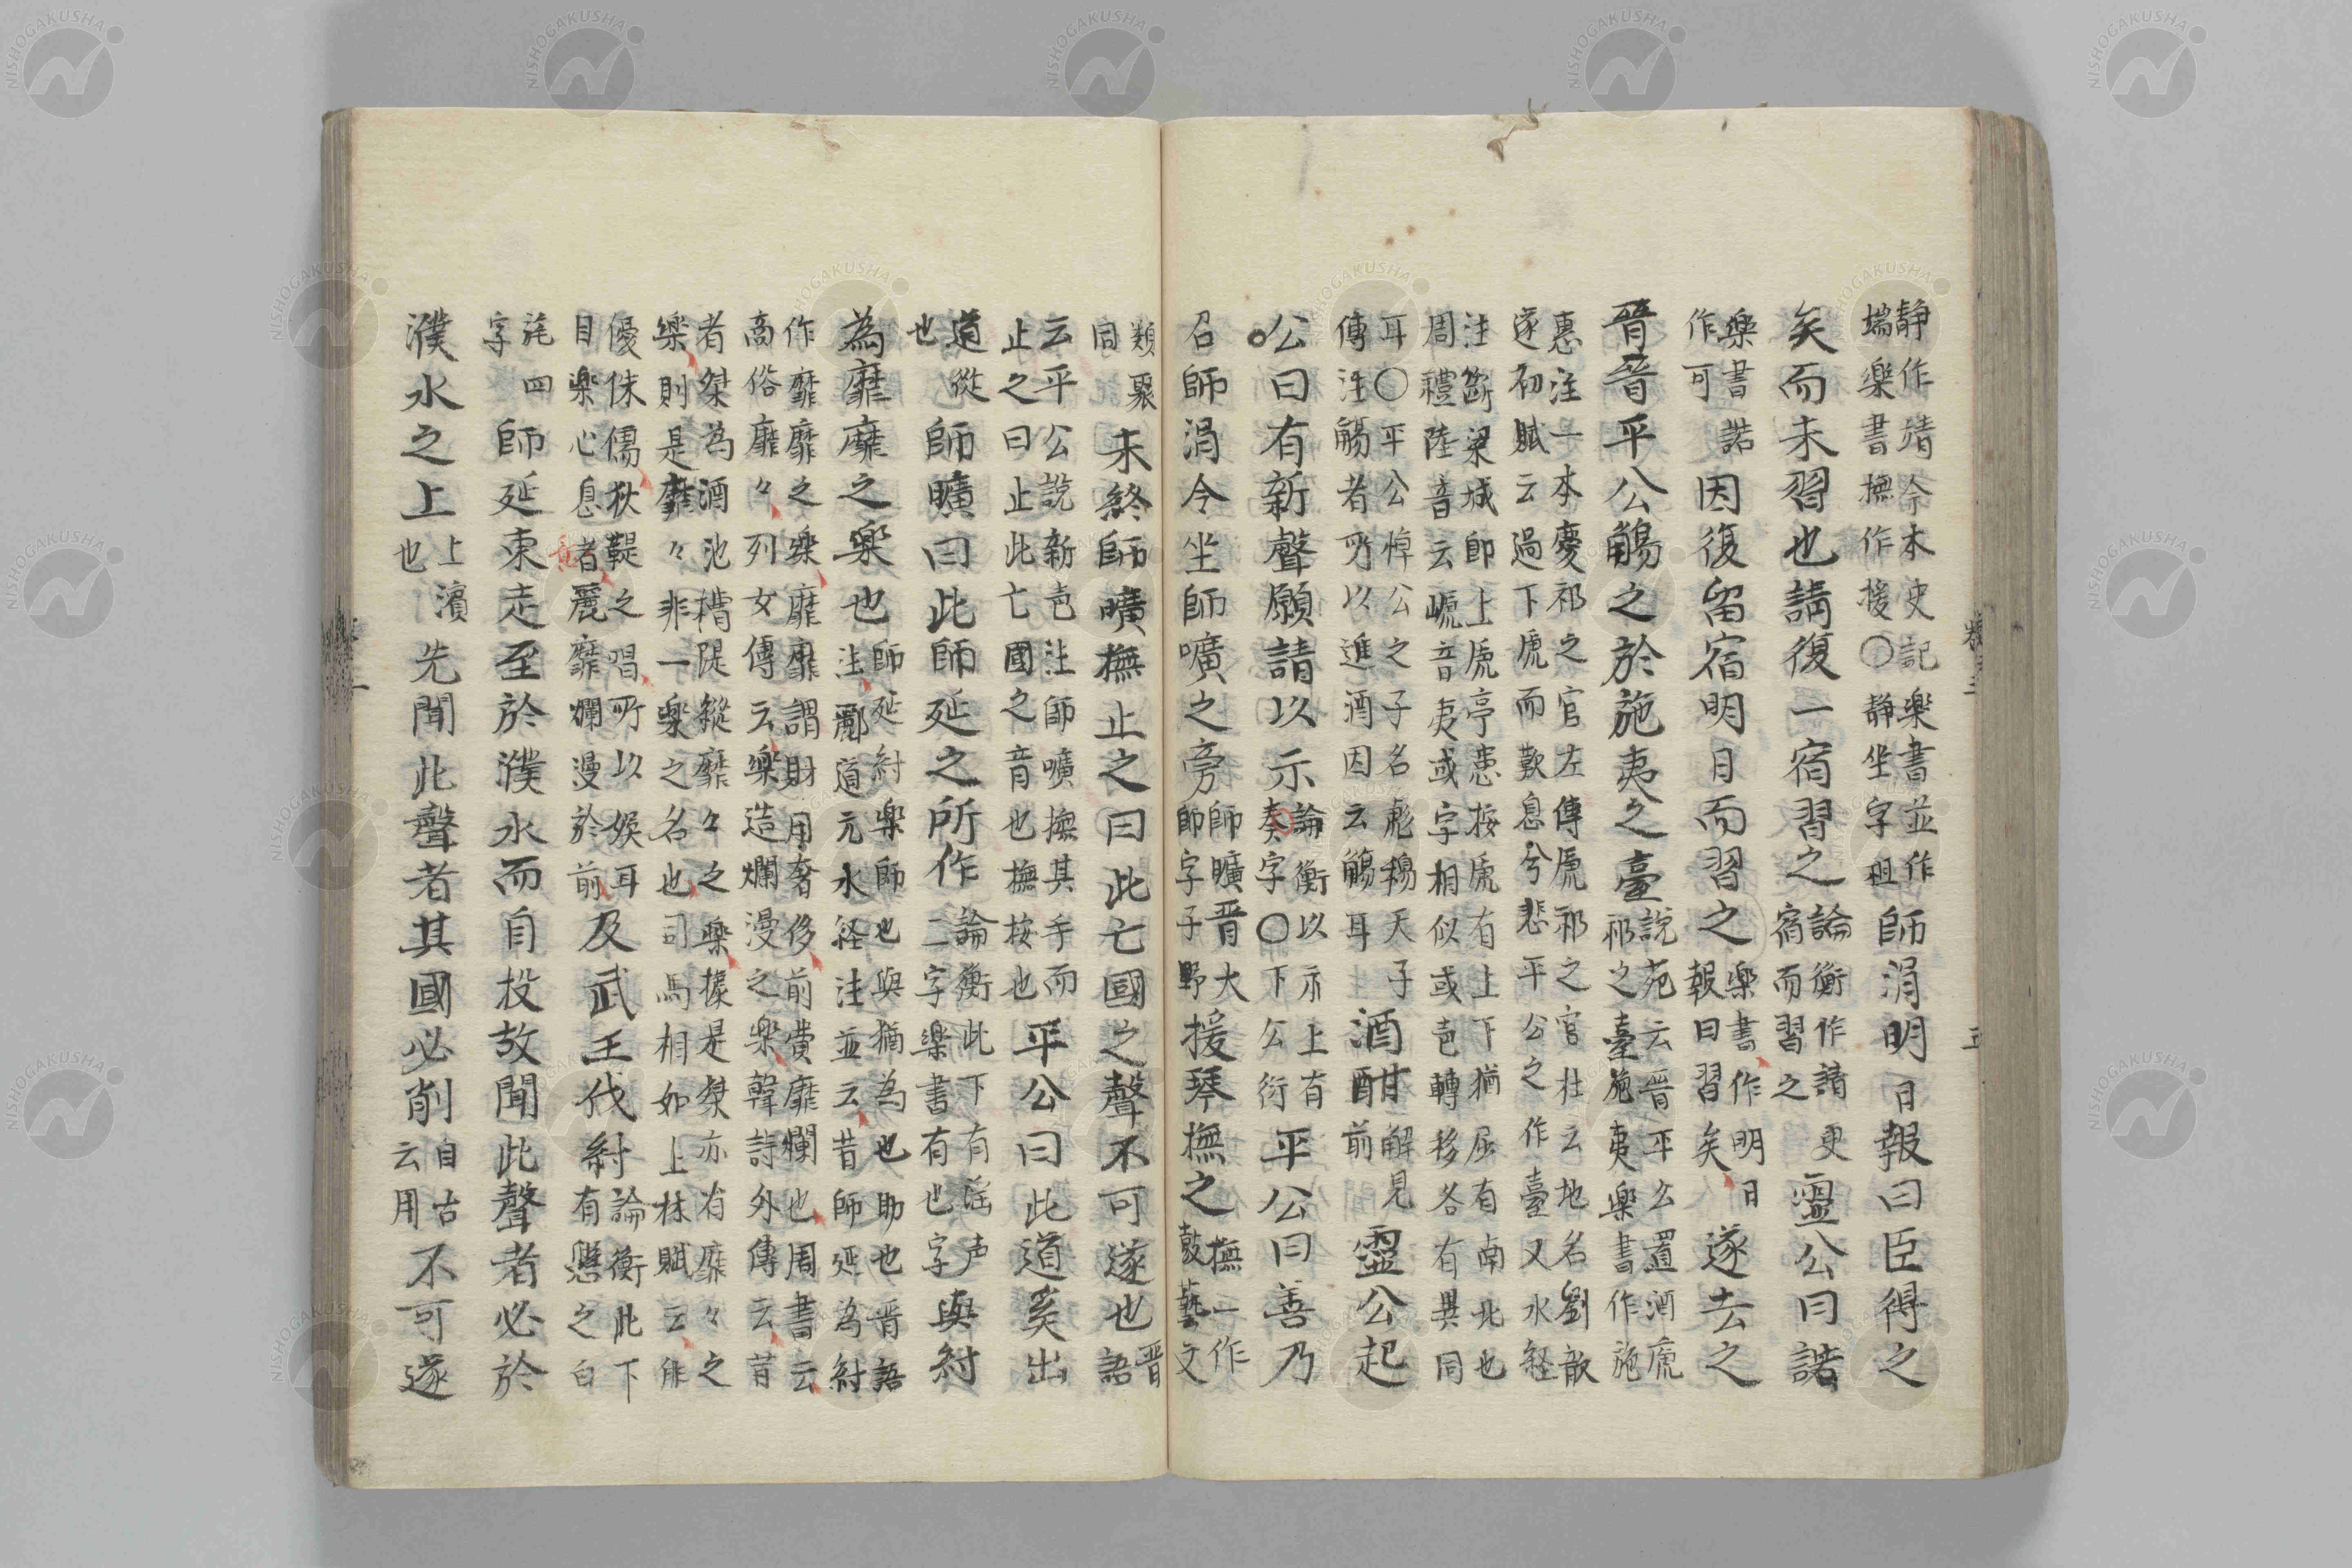 靜作靖今本史記樂書並作
端樂書撫作援〇靜坐字祖
師涓明日報曰臣得之
矣而未習也請復一宿習之
論衡作請更
宿而習之
靈公曰諾
樂書諾
作可
因復留宿明日而習之
樂書作明日
報曰習矣
遂去之
晉晉平公觴之於施夷之臺
說苑云晉平公置酒虒
祁之臺施夷樂書作施
惠注一本慶祁之官左傳虒祁之官杜云地名劉歆
遂初賦云過下虒而歎息兮悲平公之作臺又水經
注斷梁城即上虒亭惠按虒有上下猶屈有南北也
周禮陸音云虒音夷或字相似或音轉移各有異同
耳〇平公悼公之子名彪穆天子
傳注觴者所以進酒因云觴耳
酒酣
解見
前
靈公起
公曰有新聲願請以示
論衡以示上有
奏字〇下公衍
平公曰善乃
召師涓令坐師曠之旁
師曠晋大
師字子野
援琴撫之
撫一作
鼓藝文
類聚
同
未終師曠撫止之曰此亡國之聲不可遂也
晋
語
云平公說新声注師曠撫其手而
止之曰止此亡國之音也撫按也
平公曰此道奚出
道從
也
師曠曰此師延之所作
論衡此下有淫声
二字樂書有也字
與紂
為靡靡之樂也
師延紂樂師也與猶為也助也晋語
注酈道元水経注並云昔師延為紂
作靡靡之樂靡靡謂財用奢侈前費靡爛也周書云
高俗靡々列女傳云樂造爛漫之樂韓詩外傳云昔
者桀為酒池糟隄縱靡々之樂據是桀亦有靡々之
樂則是靡々非一樂之名也司馬相如上林賦云俳
優侏儒狄鞮之唱所以娱耳
目樂心息者麗靡爛漫於前
意
及武王伐紂
論衡此下
有懸之白
旄四
字
師延東走至於濮水而自投故聞此聲者必於
濮水之上
上濱
也
先聞此聲者其國必削
自古
云用
不可遂